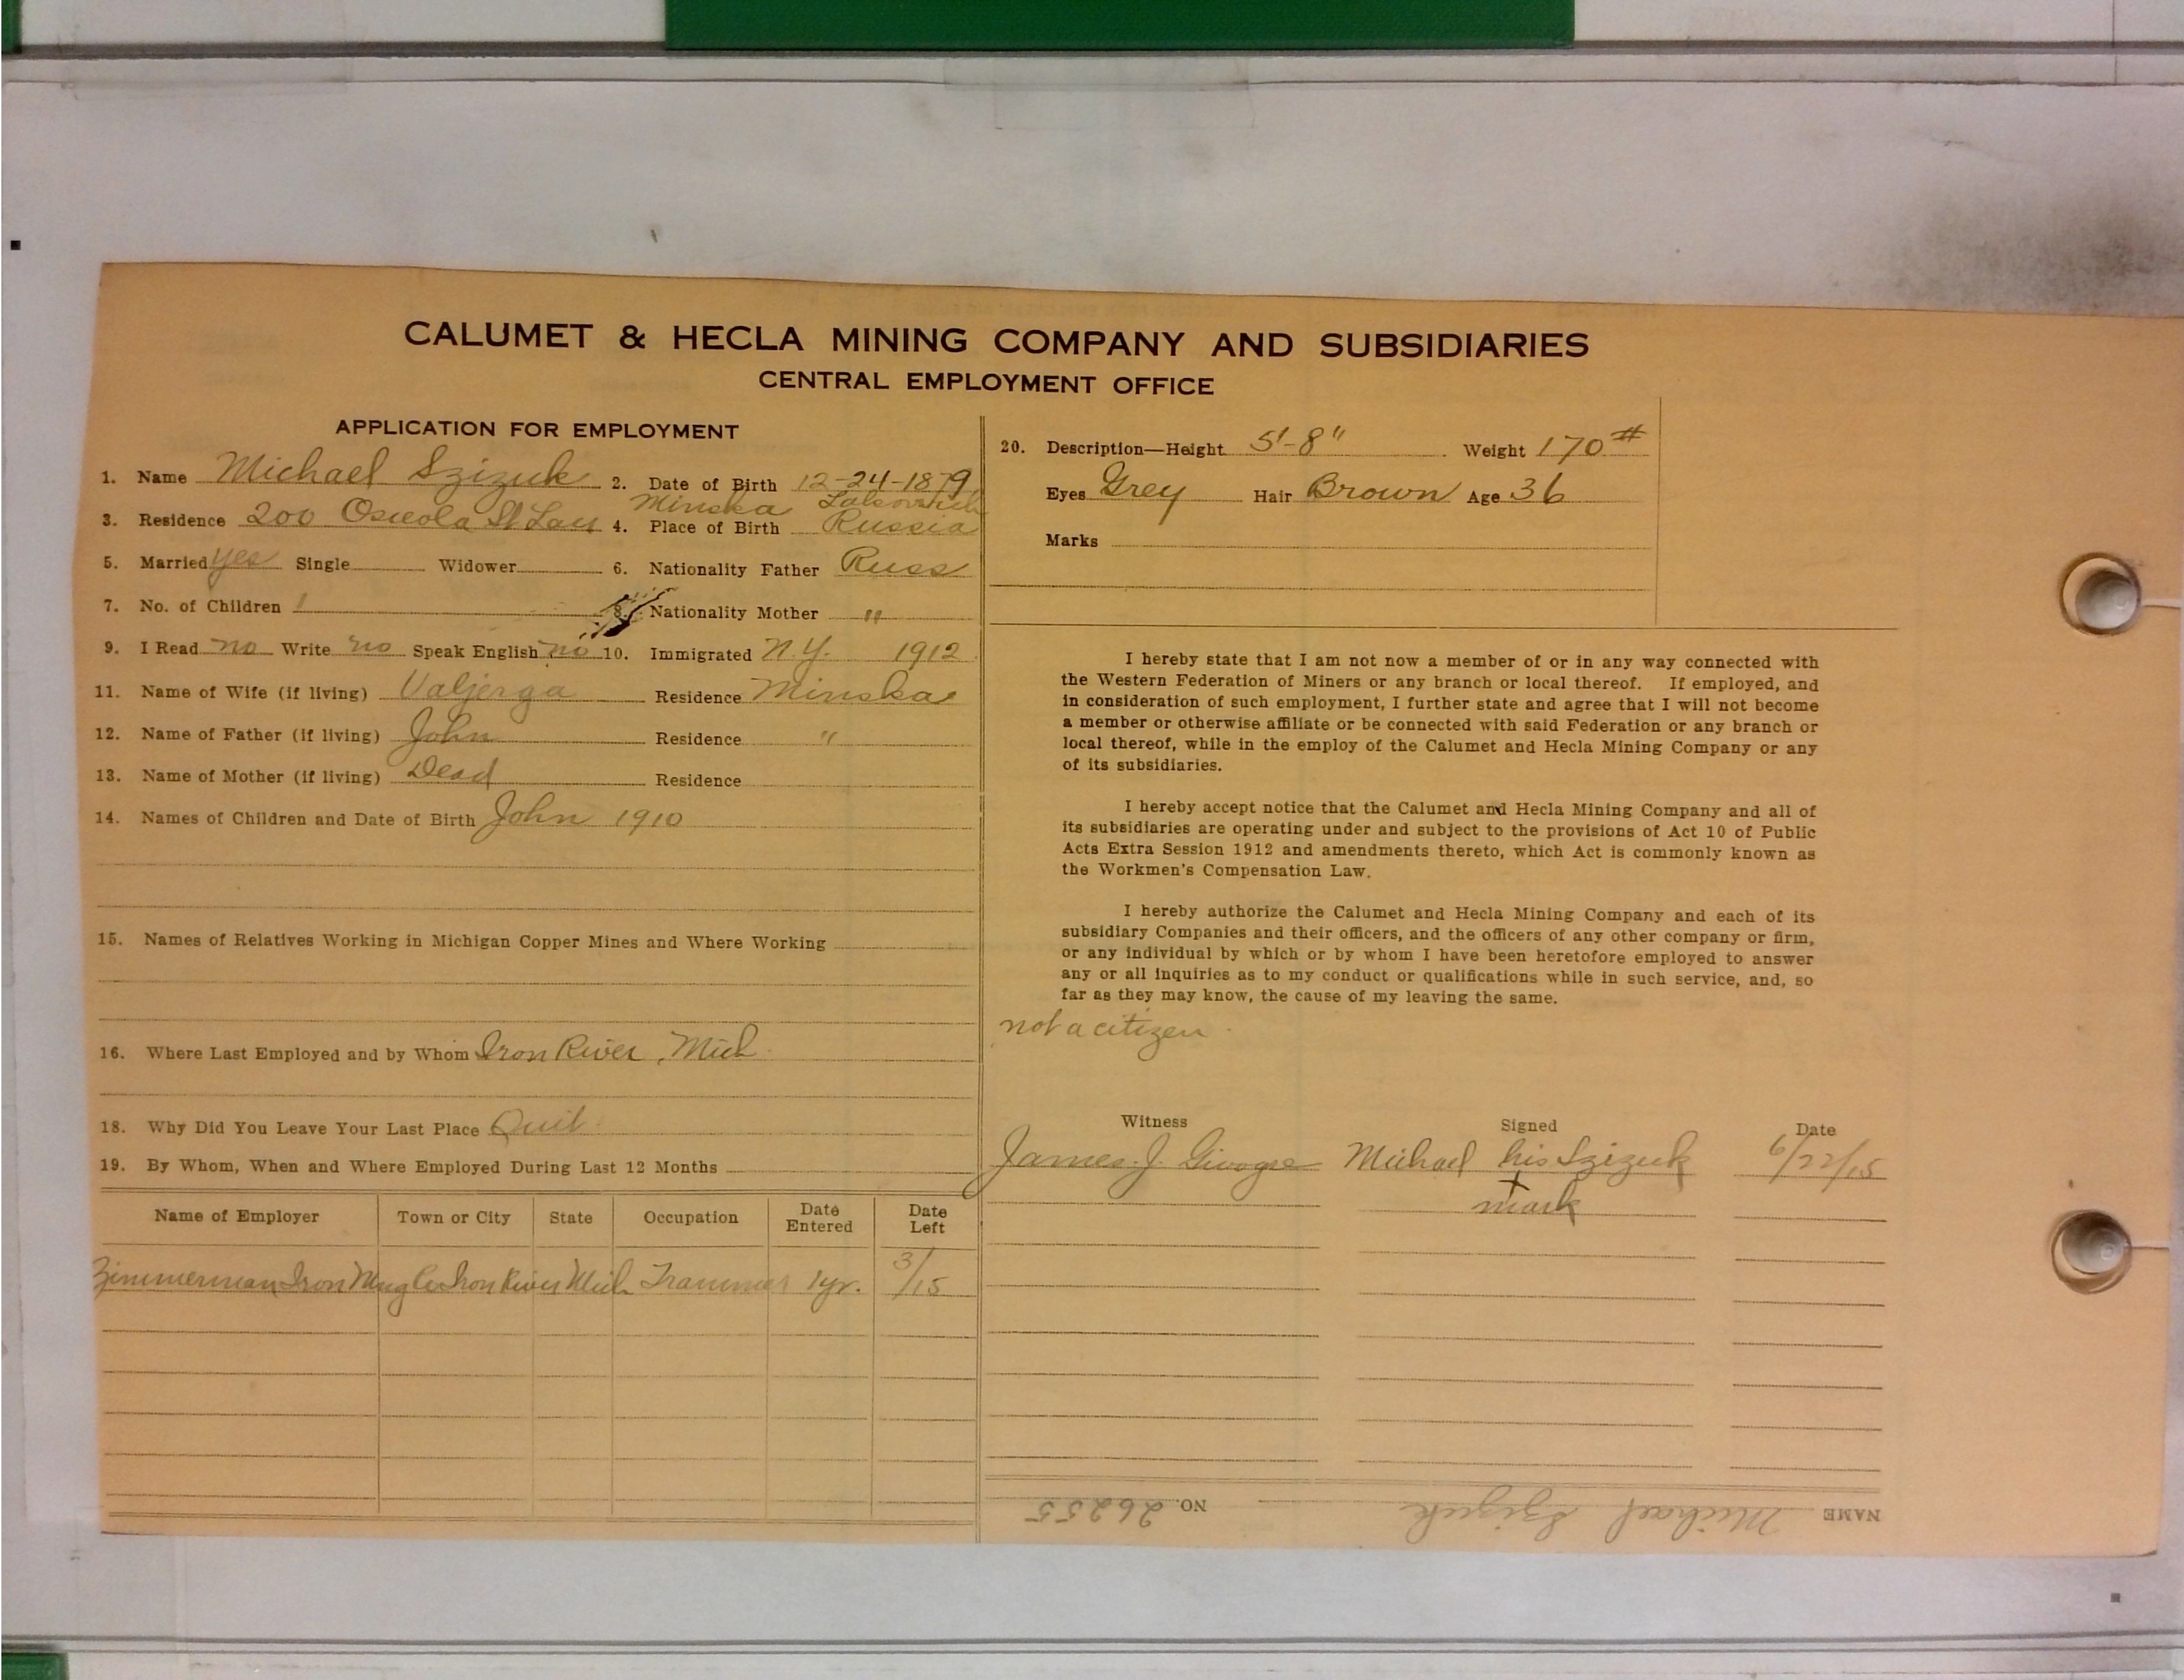 CALUMET & HECLA MINING COMPANY AND SUBSIDIARIES
CENTRAL EMPLOYMENT OFFICE
APPLICATION FOR EMPLOYMENT
1. Name Michael Szizuk 2. Date of Birth 12-24-1879
Minska
3. Residence 200 Osceola St Lau 4. Place of Birth Russia
5. Married yes Single Widower 6. Nationality Father Russ
7. No. of Children 1 8. Nationality Mother "
9. I Read no Write no Speak English no 10. Immigrated N.Y. 1912
11. Name of Wife (if living) Valjerga Residence Minska
12. Name of Father (if living) John Residence "
13. Name of Mother (if living) Dead Residence
14. Names of Children and Date of Birth John 1910
15. Names of Relatives Working in Michigan Copper Mines and Where Working
16. Where Last Employed and by Whom Iron River, Mich
18. Why Did You Leave Your Last Place Quit
19. By Whom, When and Where Employed During Last 12 Months
Name of Employer Town or City State Occupation Date Entered Date Left
Zimmerman Iron Mng Co Iron River Mich Trammer 1 yr. 3/15
20. Description—Height 5'-8" Weight 170#
Eyes Grey Hair Brown Age 36
Marks
I hereby state that I am not now a member of or in any way connected with
the Western Federation of Miners or any branch or local thereof. If employed, and
in consideration of such employment, I further state and agree that I will not become
a member or otherwise affiliate or be connected with said Federation or any branch or
local thereof, while in the employ of the Calumet and Hecla Mining Company or any
of its subsidiaries.
I hereby accept notice that the Calumet and Hecla Mining Company and all of
its subsidiaries are operating under and subject to the provisions of Act 10 of Public
Acts Extra Session 1912 and amendments thereto, which Act is commonly known as
the Workmen's Compensation Law.
I hereby authorize the Calumet and Hecla Mining Company and each of its
subsidiary Companies and their officers, and the officers of any other company or firm,
or any individual by which or by whom I have been heretofore employed to answer
any or all inquiries as to my conduct or qualifications while in such service, and, so
far as they may know, the cause of my leaving the same.
not a citizen
Witness Signed Date
James J. Michael his Szizuk 6/22/15
x
mark
NAME Michael Szizuk NO. 26255